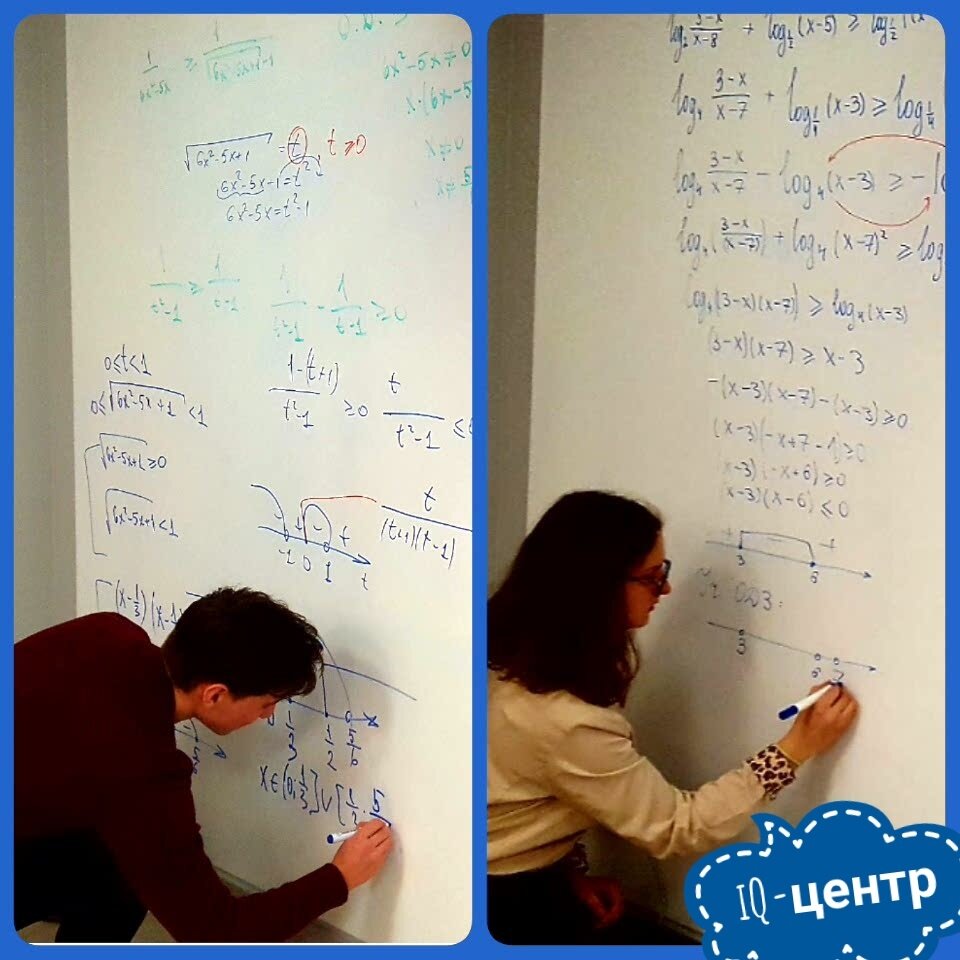 1/(6x²-5x) ≥ 1/(√(6x²-5x+1)-1)
6x²-5x≠0
x·(6x-5
x≠0
x≠5
√(6x²-5x+1) = t t ≥ 0
6x²-5x-1=t²
6x²-5x=t²-1
1/(t²-1) ≥ 1/(t-1) 1/(t²-1) - 1/(t-1) ≥ 0
0≤t<1
0≤√(6x²-5x+1)<1
√(6x²-5x+1)≥0
√(6x²-5x+1)<1
(1-(t+1))/(t²-1) ≥ 0 t/(t²-1) ≤
t/((t+1)(t-1))
- + - +
-1 0 1 t
(x-1/3)(x-1
0 1/3 1/2 5/6 x
x∈(0;1/3]∪[1/2; 5
log₂ (3-x)/(x-8) + log_{1/2} (x-5) ≥ log_{1/2} (x
log₄ (3-x)/(x-7) + log_{1/4} (x-3) ≥ log_{1/4}
log₄ (3-x)/(x-7) - log₄ (x-3) ≥ - lo
log₄ ((3-x)/(x-7)) + log₄ (x-7)² ≥ log
log₄ (3-x)(x-7) ≥ log₄ (x-3)
(3-x)(x-7) ≥ x-3
-(x-3)(x-7)-(x-3)≥0
(x-3)(-x+7-1)≥0
(x-3)(-x+6)≥0
(x-3)(x-6)≤0
+ - +
3 6
3 6 7
IQ-центр